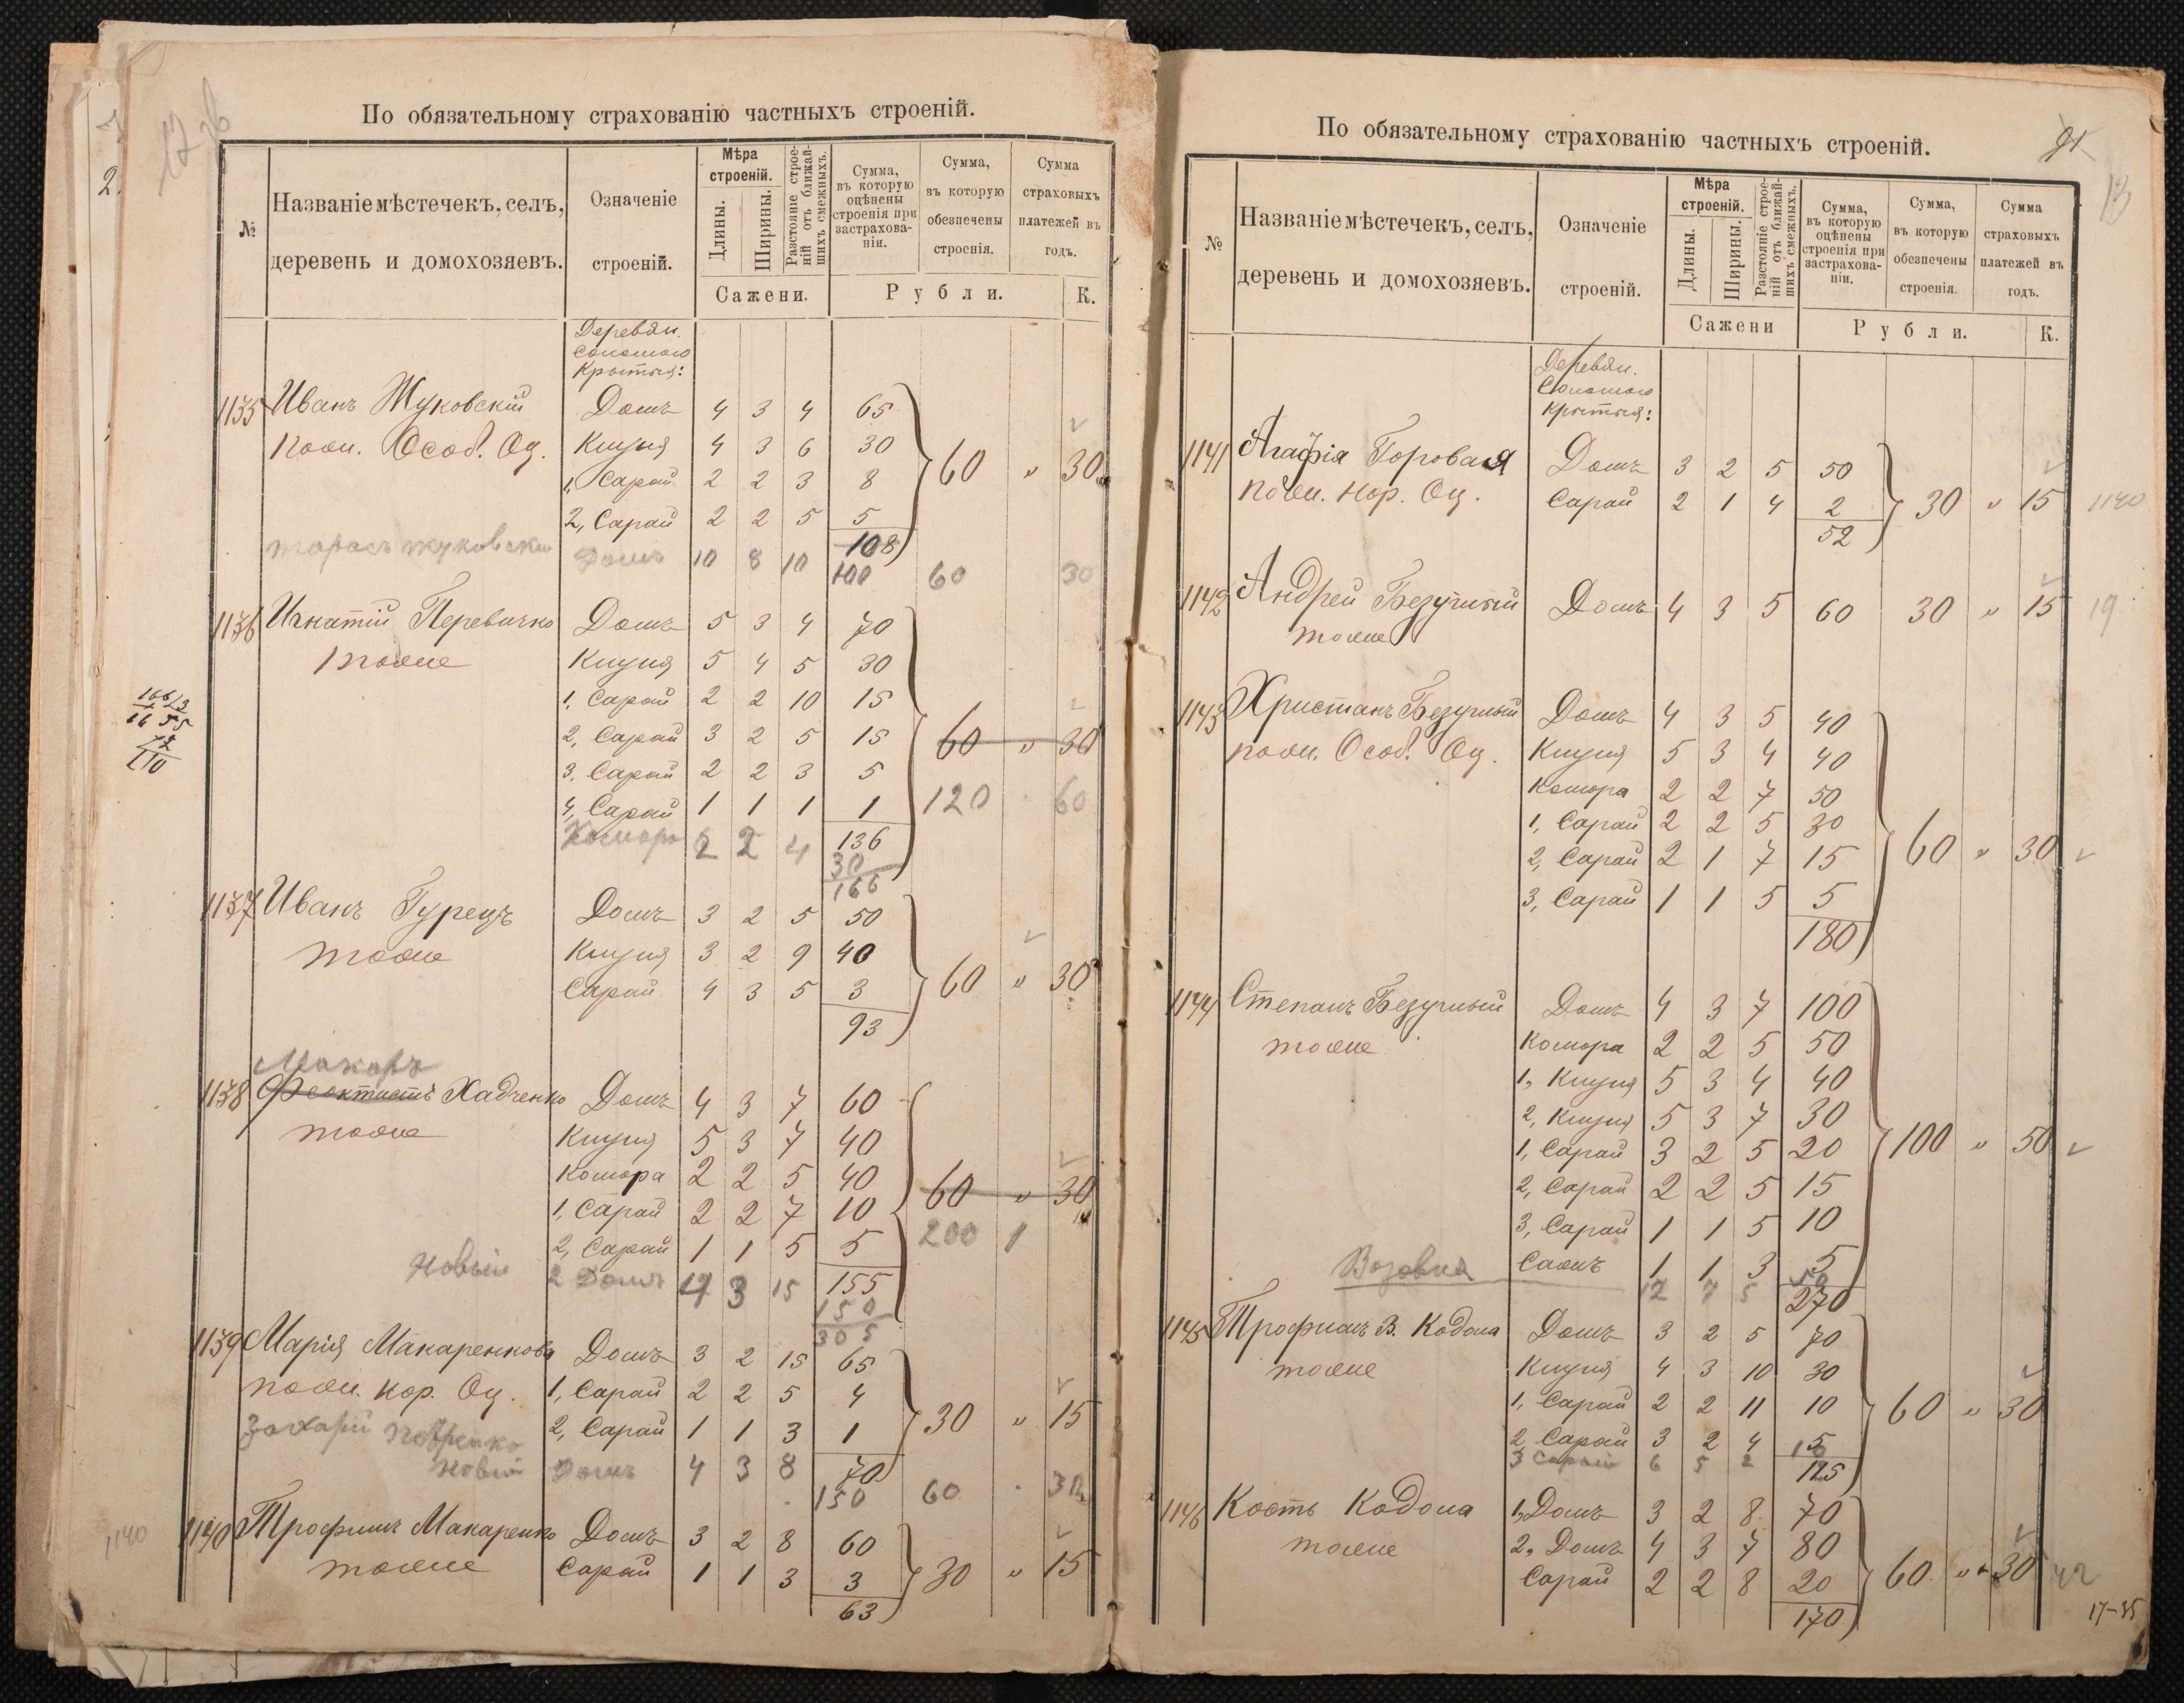 По обязательному страхованію частныхъ строеній.
№
Названіе мѣстечекъ, селъ,
деревень и домохозяевъ.
Означеніе
строеній.
Мѣра
строеній.
Длины.
Ширины.
Разстояніе строеній отъ ближайшихъ смежныхъ.
Сажени.
Сумма,
въ которую
оцѣнены
строенія при
застрахова-
ніи.
Сумма,
въ которую
обезпечены
строенія.
Сумма
страховыхъ
платежей въ
годъ.
Рубли.
К.
Деревян.
Соломою
Крытыя:
1135 Иванъ Жуковскій Домъ 4 3 4 65
Особ. Оц. Клуня 4 3 6 30 60 " 30
1, Сарай 2 2 3 8
2, Сарай 2 2 5 5
108
Тарасъ Жуковски Домъ 10 8 10 100 60 30
1136 Игнатій Перевичко Домъ 5 3 4 70
тоже Клуня 5 4 5 30
1, Сарай 2 2 10 15
2, Сарай 3 2 5 15 60 " 30
3, Сарай 2 2 3 5
4, Сарай 1 1 1 1 120 60
Комора 2 2 4 136
30
166
1137 Иванъ Гурецъ Домъ 3 2 5 50
тоже Клуня 3 2 9 40
Сарай 4 3 5 3 60 " 30
93
Макаръ
1138 Феоктистъ Хадченко Домъ 4 3 7 60
тоже Клуня 5 3 7 40
Комора 2 2 5 40 60 " 30
1, Сарай 2 2 7 10
2, Сарай 1 1 5 5 200 1
Новый 2 Домъ 4 3 15 155
150
305
1139 Марія Макаренкова Домъ 3 2 15 65
кор. Оц. 1, Сарай 2 2 5 4
Захарій 2, Сарай 1 1 3 1 30 " 15
Новый Домъ 4 3 8 70
150 60 30
1140 1140 Трофимъ Макаренко Домъ 3 2 8 60
тоже Сарай 1 1 3 3 30 " 15
63
По обязательному страхованію частныхъ строеній.
91
13
№
Названіе мѣстечекъ, селъ,
деревень и домохозяевъ.
Означеніе
строеній.
Мѣра
строеній.
Длины.
Ширины.
Разстояніе строеній отъ ближайшихъ смежныхъ.
Сажени
Сумма,
въ которую
оцѣнены
строенія при
застрахова-
ніи.
Сумма,
въ которую
обезпечены
строенія.
Сумма
страховыхъ
платежей въ
годъ.
Рубли.
К.
Деревян.
Соломою
Крытыя:
1141 Агафія Горовая Домъ 3 2 5 50
кор. Оц. Сарай 2 1 4 2 30 " 15 1140
52
1142 Андрей Безуглый Домъ 4 3 5 60 30 " 15 19
тоже
1143 Христанъ Безуглый Домъ 4 3 5 40
Особ. Оц. Клуня 5 3 4 40
Комора 2 2 7 50
1, Сарай 2 2 5 30
2, Сарай 2 1 7 15 60 " 30
3, Сарай 1 1 5 5
180
1144 Степанъ Безуглый Домъ 4 3 7 100
тоже Комора 2 2 5 50
1, Клуня 5 3 4 40
2, Клуня 5 3 7 30
1, Сарай 3 2 5 20 100 " 50
2, Сарай 2 2 5 15
3, Сарай 1 1 5 10
Сажъ 1 1 3 5
Возовня 12 7 5 50
270
1145 Трофимъ В. Кодола Домъ 3 2 5 70
тоже Клуня 4 3 10 30
1, Сарай 2 2 11 10 60 " 30
2, Сарай 3 2 4 5
3 Сарай 6 5 2 10
125
1146 Кость Кодола 1, Домъ 3 2 8 70
тоже 2, Домъ 4 3 7 80
Сарай 2 2 8 20 60 " 30
170
17-85